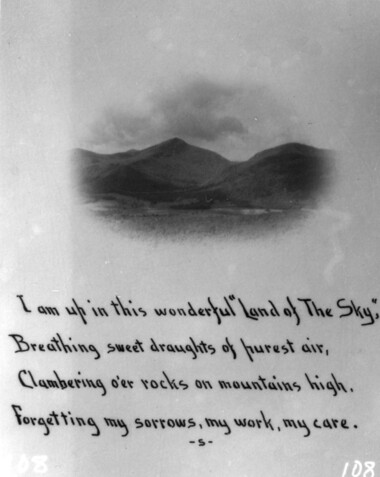 I am up in this wonderful "Land of The Sky",
Breathing sweet draughts of purest air,
Clambering o'er rocks on mountains high.
Forgetting my sorrows, my work, my care.
-s-
108 108